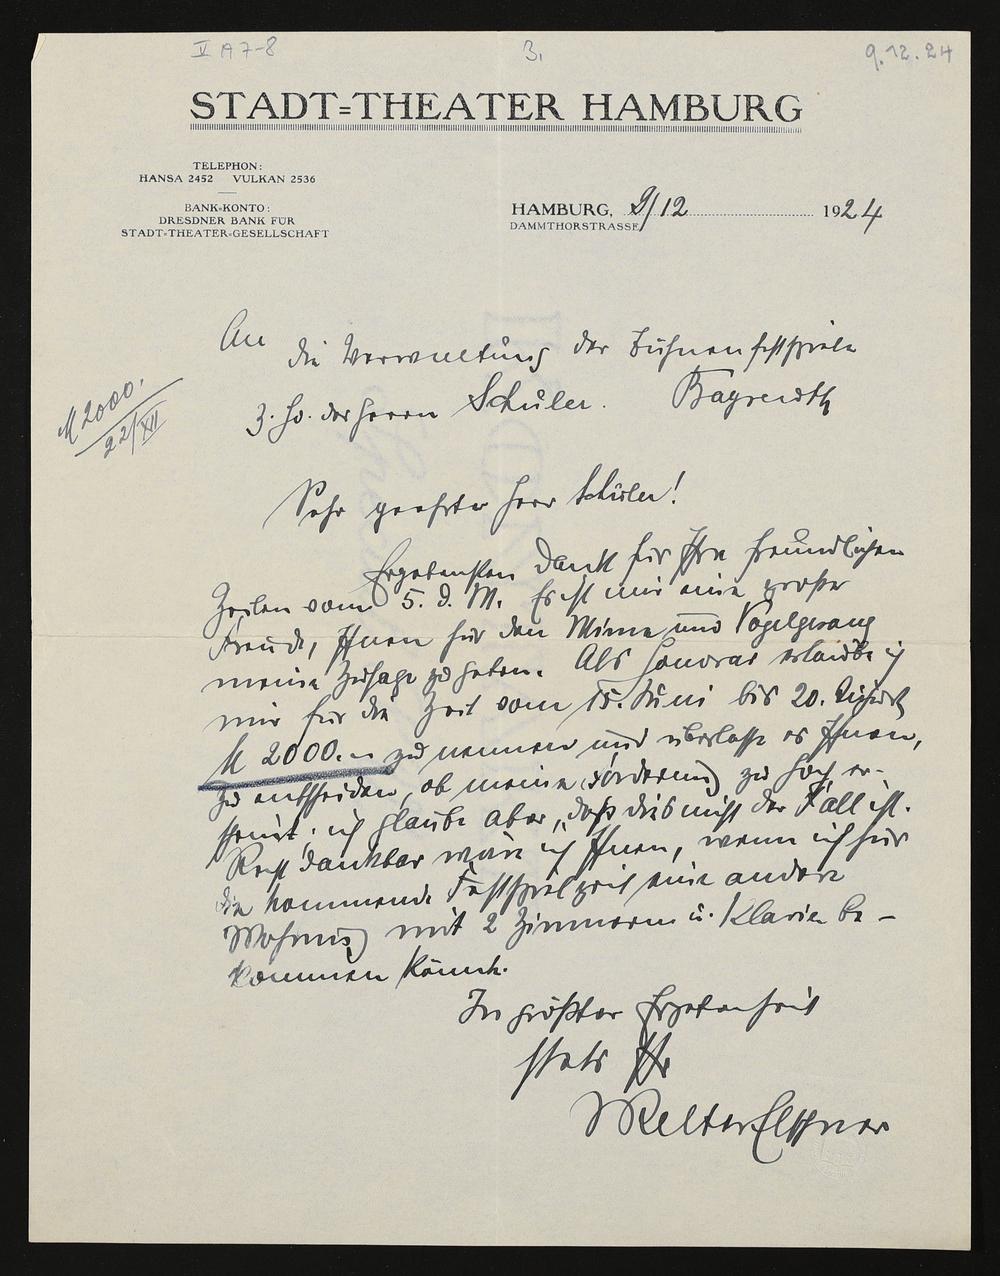 V A 7-8
3.
9.12.24
STADT=THEATER HAMBURG
TELEPHON:
HANSA 2452 VULKAN 2536
BANK=KONTO:
DRESDNER BANK FÜR
STADT=THEATER=GESELLSCHAFT
HAMBURG, 9/12 1924
DAMMTHORSTRASSE
An
die Verwaltung der Bühnenfestspiele
z. Hd. des Herrn Schuler. Bayreuth
M 2000.
22/XII
Sehr geehrter Herr Schuler!
Ergebensten Dank für Ihre freundlichen
Zeilen vom 5. d. M. Es ist mir eine große
Freude, Ihnen für den Mime und Vogelgesang
meine Zusage zu geben. Als Honorar erlaube ich
mir für die Zeit vom 15. Juni bis 20. August
M 2000.– zu nennen und überlasse es Ihnen,
zu entscheiden, ob meine Forderung zu hoch er-
scheint; ich glaube aber, daß dies nicht der Fall ist.
Recht dankbar wäre ich Ihnen, wenn ich für
die kommende Festspielzeit eine andere
Wohnung mit 2 Zimmern u. Klavier be-
kommen könnte.
In größter Ergebenheit
stets Ihr
Walter Elschner